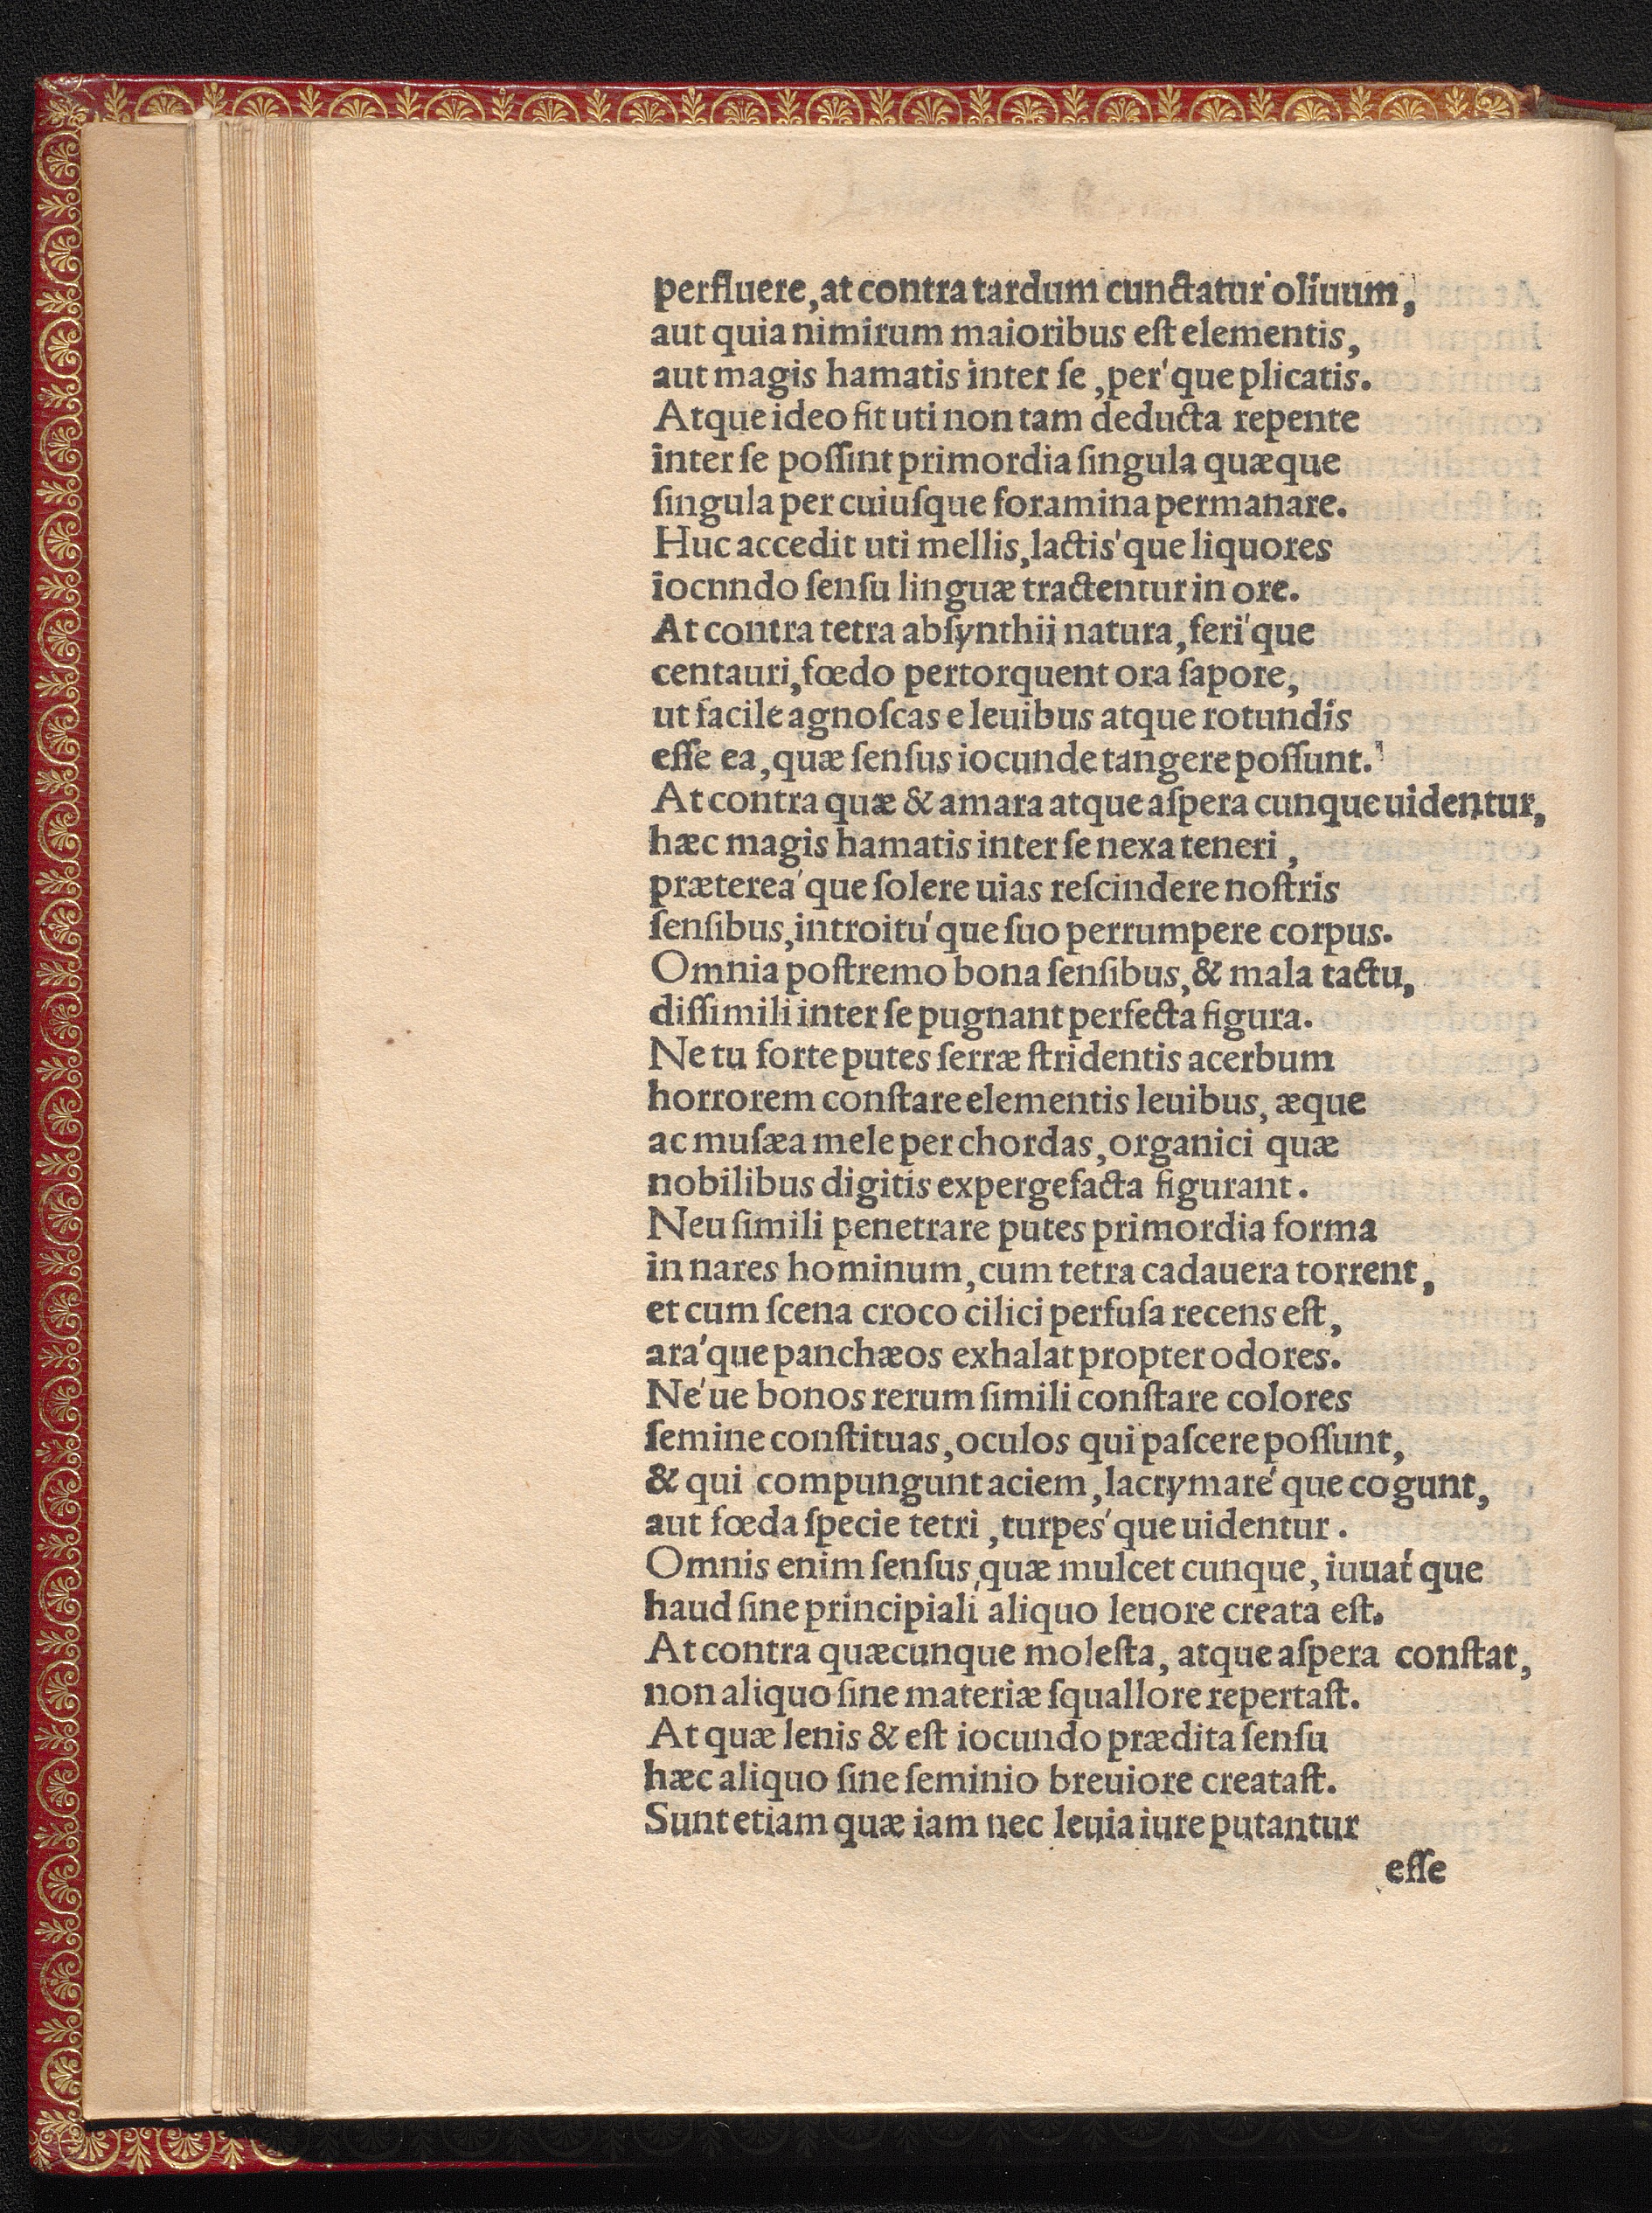 perfluere, at contra tardum cunctatur oliuum,
aut quia nimirum maioribus eſt elementis,
aut magis hamatis inter ſe, per'que plicatis.
Atque ideo fit uti non tam deducta repente
inter ſe poſſint primordia ſingula quæque
ſingula per cuiuſque foramina permanare.
Huc accedit uti mellis, lactis'que liquores
iocnndo ſenſu linguæ tractentur in ore.
At contra tetra abſynthii natura, feri'que
centauri, fœdo pertorquent ora ſapore,
ut facile agnoſcas e leuibus atque rotundis
eſſe ea, quæ ſenſus iocunde tangere poſſunt.
At contra quæ & amara atque aſpera cunque uidentur,
hæc magis hamatis inter ſe nexa teneri,
præterea'que ſolere uias reſcindere noſtris
ſenſibus, introitu'que ſuo perrumpere corpus.
Omnia poſtremo bona ſenſibus, & mala tactu,
diſſimili inter ſe pugnant perfecta figura.
Ne tu forte putes ſerræ ſtridentis acerbum
horrorem conſtare elementis leuibus, æque
ac muſæa mele per chordas, organici quæ
nobilibus digitis expergefacta figurant.
Neu ſimili penetrare putes primordia forma
in nares hominum, cum tetra cadauera torrent,
et cum ſcena croco cilici perfuſa recens eſt,
ara'que panchæos exhalat propter odores.
Ne'ue bonos rerum ſimili conſtare colores
ſemine conſtituas, oculos qui paſcere poſſunt,
& qui compungunt aciem, lacrymare'que cogunt,
aut fœda ſpecie tetri, turpes'que uidentur.
Omnis enim ſenſus, quæ mulcet cunque, iuuat'que
haud ſine principiali aliquo leuore creata eſt.
At contra quæcunque moleſta, atque aſpera conſtat,
non aliquo ſine materiæ ſquallore repertaſt.
At quæ lenis & eſt iocundo prædita ſenſu
hæc aliquo ſine ſeminio breuiore creataſt.
Sunt etiam quæ iam nec leuia iure putantur
eſſe